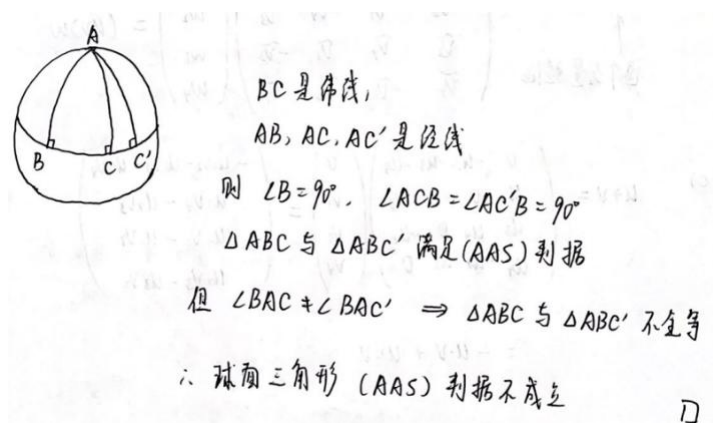 A
B
C
C'
BC是纬线,
AB, AC, AC' 是经线
则 ∠B=90°. ∠ACB=∠AC'B=90°
△ABC 与 △ABC' 满足(AAS)判据
但 ∠BAC≠∠BAC' ⇒ △ABC 与 △ABC' 不全等
∴ 球面三角形 (AAS) 判据不成立
□